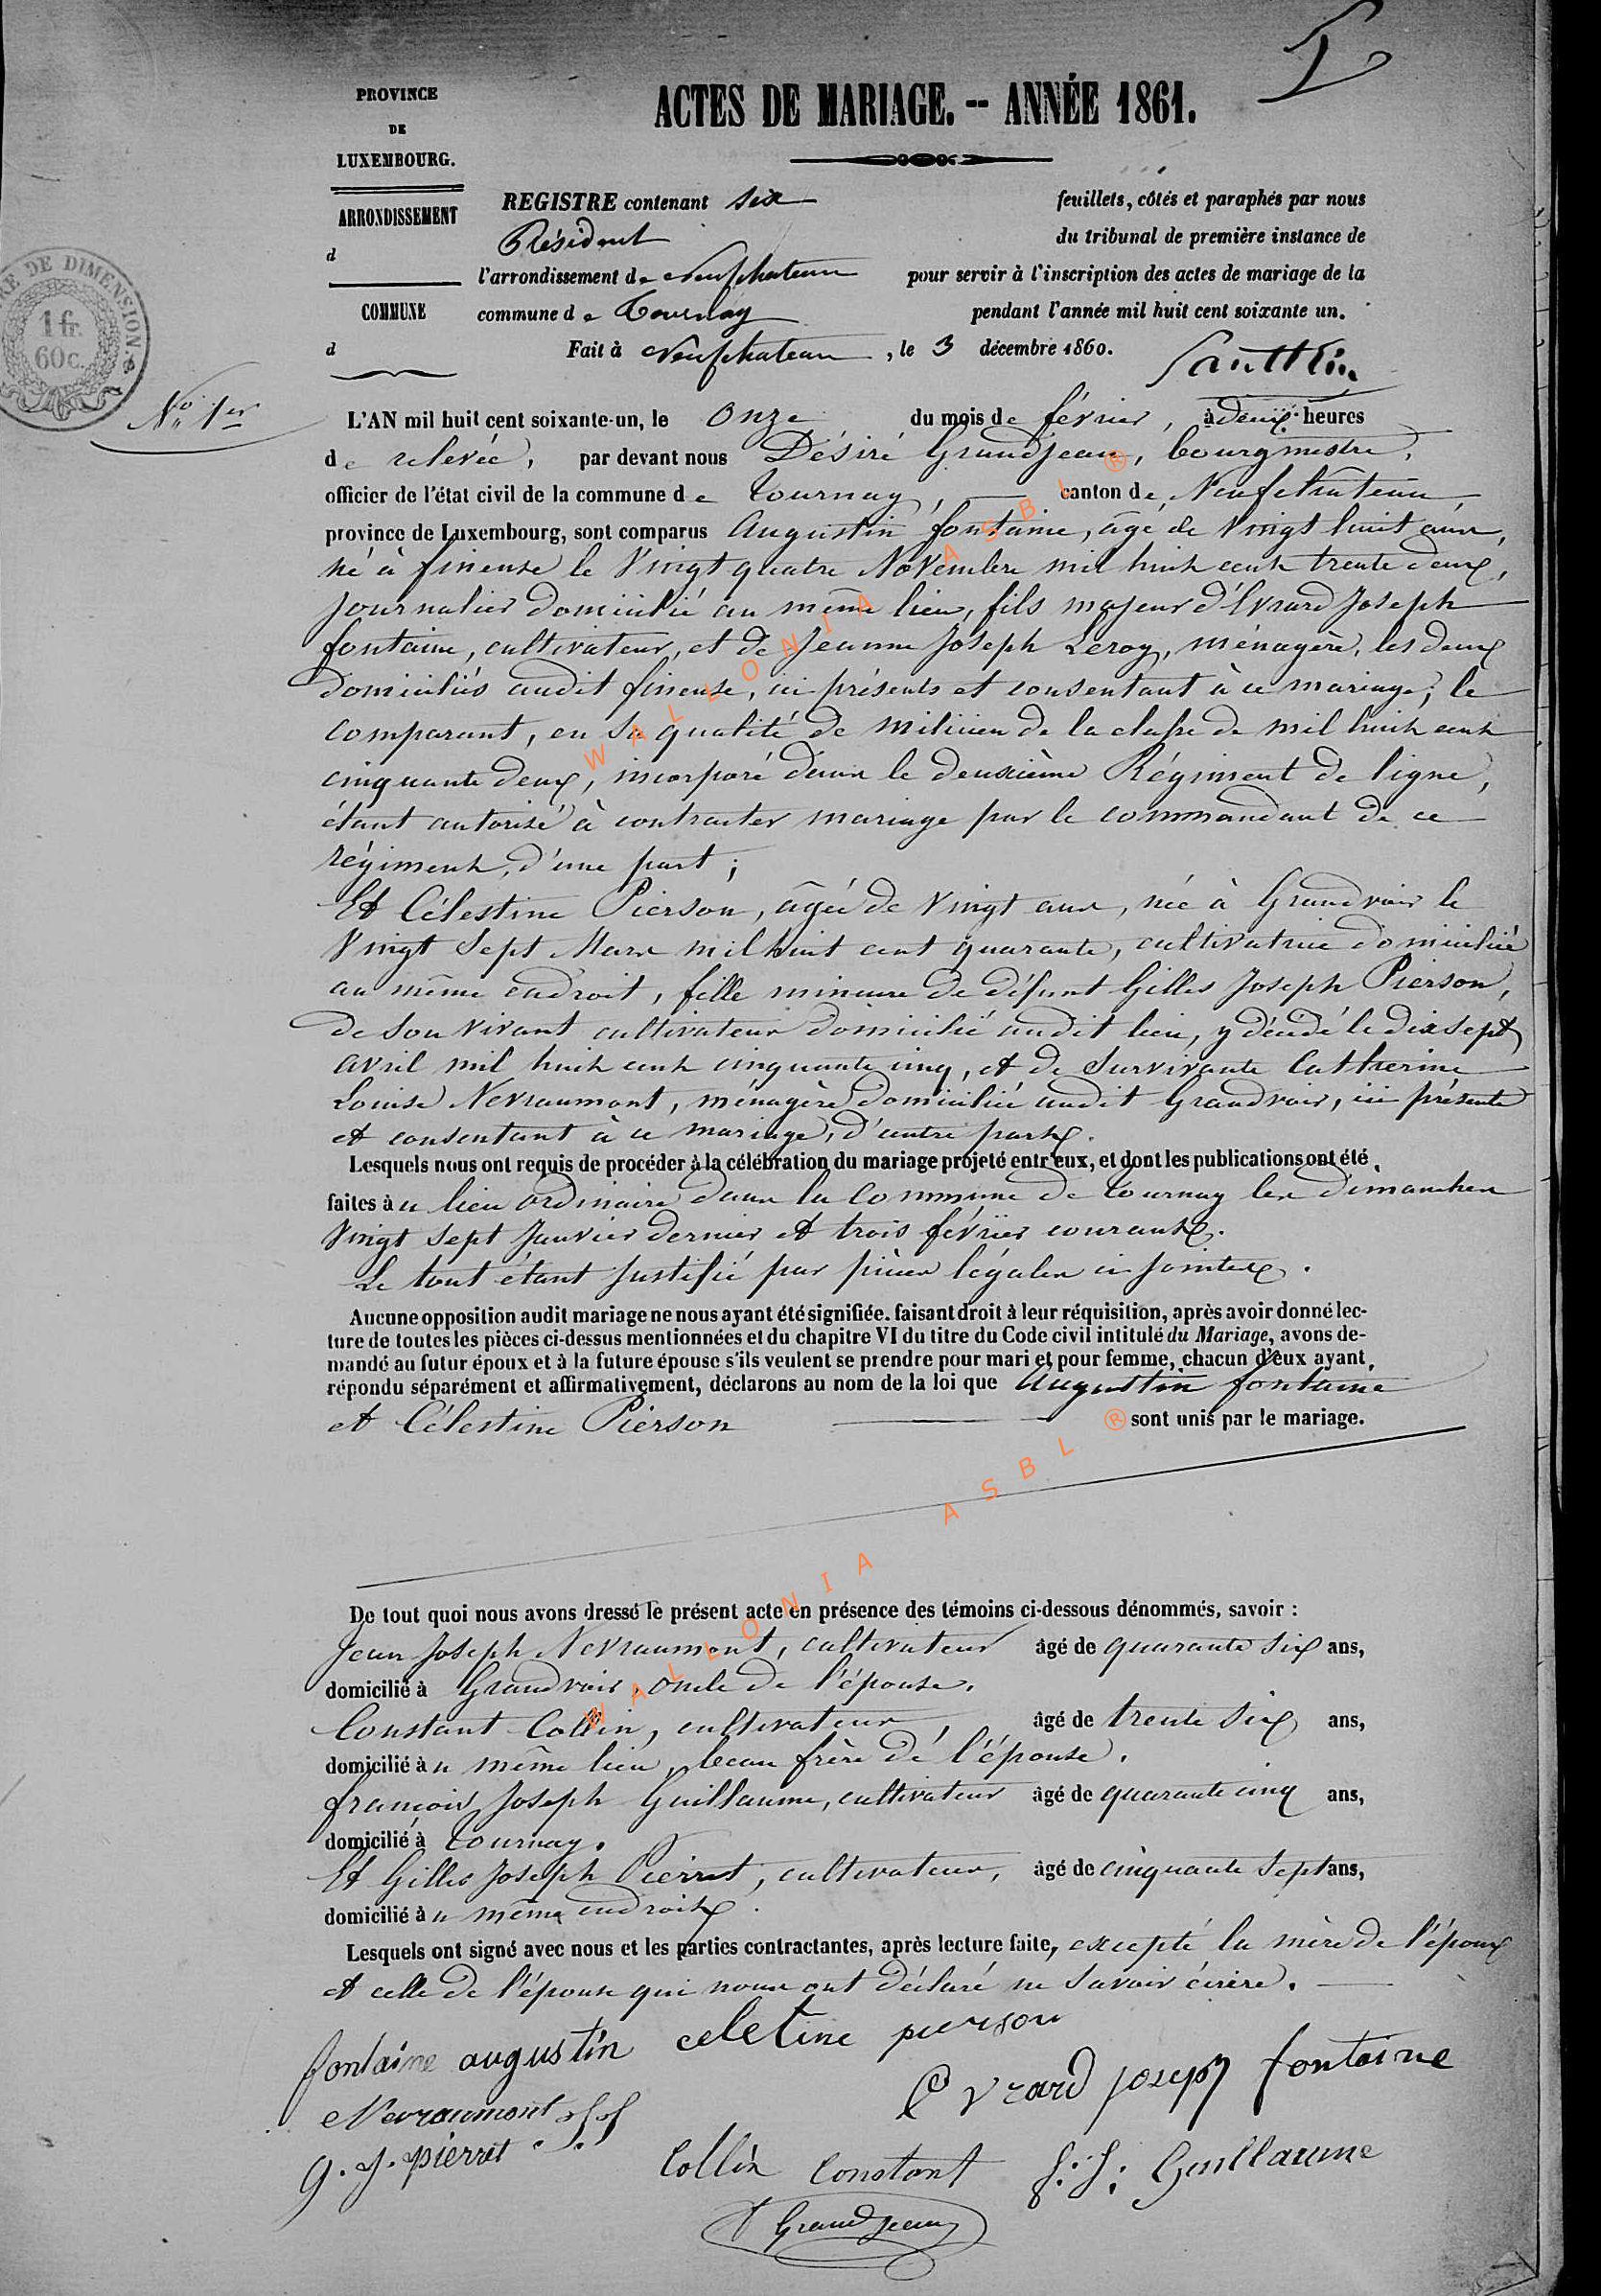 1
PROVINCE
DE
LUXEMBOURG.
ACTES DE MARIAGE. -- ANNÉE 1861.
ARRONDISSEMENT
d
COMMUNE
d
REGISTRE contenant six feuillets, côtés et paraphés par nous
Président du tribunal de première instance de
l'arrondissement de Neufchateau pour servir à l'inscription des actes de mariage de la
commune de Tournay pendant l'année mil huit cent soixante un.
Fait à Neufchateau, le 3 décembre 1860.
TIMBRE DE DIMENSION
1 fr.
60c.
No 1er
L'AN mil huit cent soixante-un, le onze du mois de février, à deux heures
de relevée, par devant nous Désiré Grandjean, bourgmestre,
officier de l'état civil de la commune de Tournay, canton de Neufchateau
province de Luxembourg, sont comparus Augustin fontaine, âgé de vingt huit ans,
né à fineuse le Vingt quatre Novembre mil huit cent trente deux,
journalier domicilié au même lieu, fils majeur d'Evrard Joseph
fontaine, cultivateur, et de Jeanne Joseph Leroy, ménagère, les deux
domiciliés audit fineuse, ici présents et consentant à ce mariage; le
comparant, en sa qualité de milicien de la classe de mil huit cent
cinquante deux, incorporé dans le deuxième Régiment de ligne,
étant autorisé à contracter mariage par le commandant de ce
régiment, d'une part;
Et Célestine Pierson, âgée de vingt ans, née à Grandvoir le
Vingt Sept Mars mil huit cent quarante, cultivatrice domiciliée
au même endroit, fille mineure de défunt Gilles Joseph Pierson,
de son vivant cultivateur domicilié audit lieu, y décédé le dix sept
avril mil huit cent cinquante cinq, et de survivante Catherine
Louise Nevraumont, ménagère domiciliée audit Grandvoir, ici présente
et consentant à ce mariage, d'autre part.
Lesquels nous ont requis de procéder à la célébration du mariage projeté entr'eux, et dont les publications ont été
faites au lieu ordinaire dans la Commune de Tournay les dimanches
Vingt sept Janvier dernier et trois février courant.
Le tout étant justifié par pièces légales ci jointes.
Aucune opposition audit mariage ne nous ayant été signifiée. faisant droit à leur réquisition, après avoir donné lec-
ture de toutes les pièces ci-dessus mentionnées et du chapitre VI du titre du Code civil intitulé du Mariage, avons de-
mandé au futur époux et à la future épouse s'ils veulent se prendre pour mari et pour femme, chacun d'eux ayant
répondu séparément et affirmativement, déclarons au nom de la loi que Augustin fontaine
et Célestine Pierson sont unis par le mariage.
De tout quoi nous avons dressé le présent acte en présence des témoins ci-dessous dénommés, savoir :
Jean Joseph Nevraumont, cultivateur âgé de quarante six ans,
domicilié à Grandvoir, oncle de l'épouse.
Constant Collin, cultivateur, âgé de trente six ans,
domicilié au même lieu, beau frère de l'épouse.
françois Joseph Guillaume, cultivateur âgé de quarante cinq ans,
domicilié à Tournay.
Et Gilles Joseph Pierret, cultivateur, âgé de cinquante sept ans,
domicilié au même endroit.
Lesquels ont signé avec nous et les parties contractantes, après lecture faite, excepté la mère de l'époux
et celle de l'épouse qui nous ont déclaré ne savoir écrire.
fontaine augustin celetine pierson
Evrard joseph fontaine
Nevraumont J J
g. J. pierret Collin Constant f: J: Guillaume
D Grandjean
WALLONIA ASBL ®
WALLONIA ASBL ®